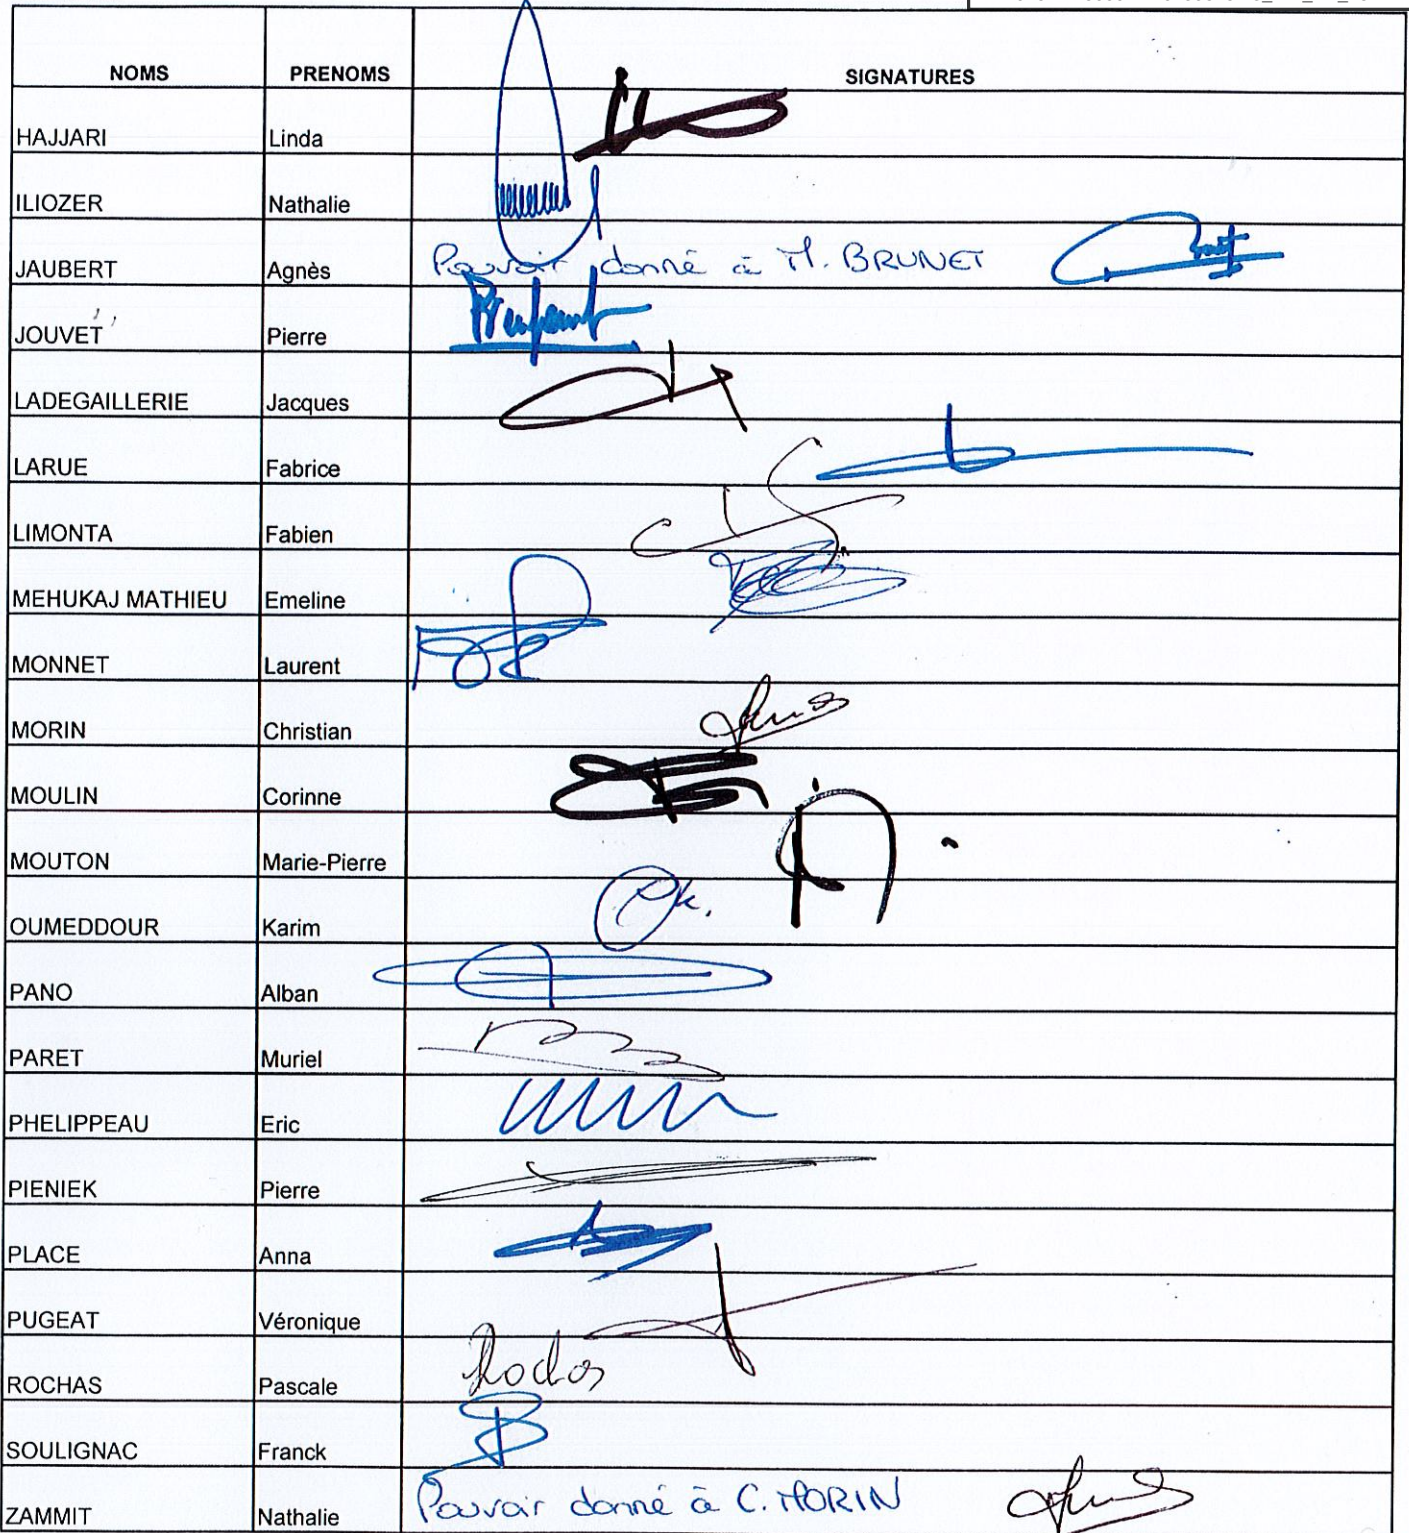 NOMS PRENOMS SIGNATURES
HAJJARI Linda
ILIOZER Nathalie
JAUBERT Agnès Pouvoir donné à M. BRUNET
JOUVET Pierre
LADEGAILLERIE Jacques
LARUE Fabrice
LIMONTA Fabien
MEHUKAJ MATHIEU Emeline
MONNET Laurent
MORIN Christian
MOULIN Corinne
MOUTON Marie-Pierre
OUMEDDOUR Karim
PANO Alban
PARET Muriel
PHELIPPEAU Eric
PIENIEK Pierre
PLACE Anna
PUGEAT Véronique
ROCHAS Pascale
SOULIGNAC Franck
ZAMMIT Nathalie Pouvoir donné à C. MORIN